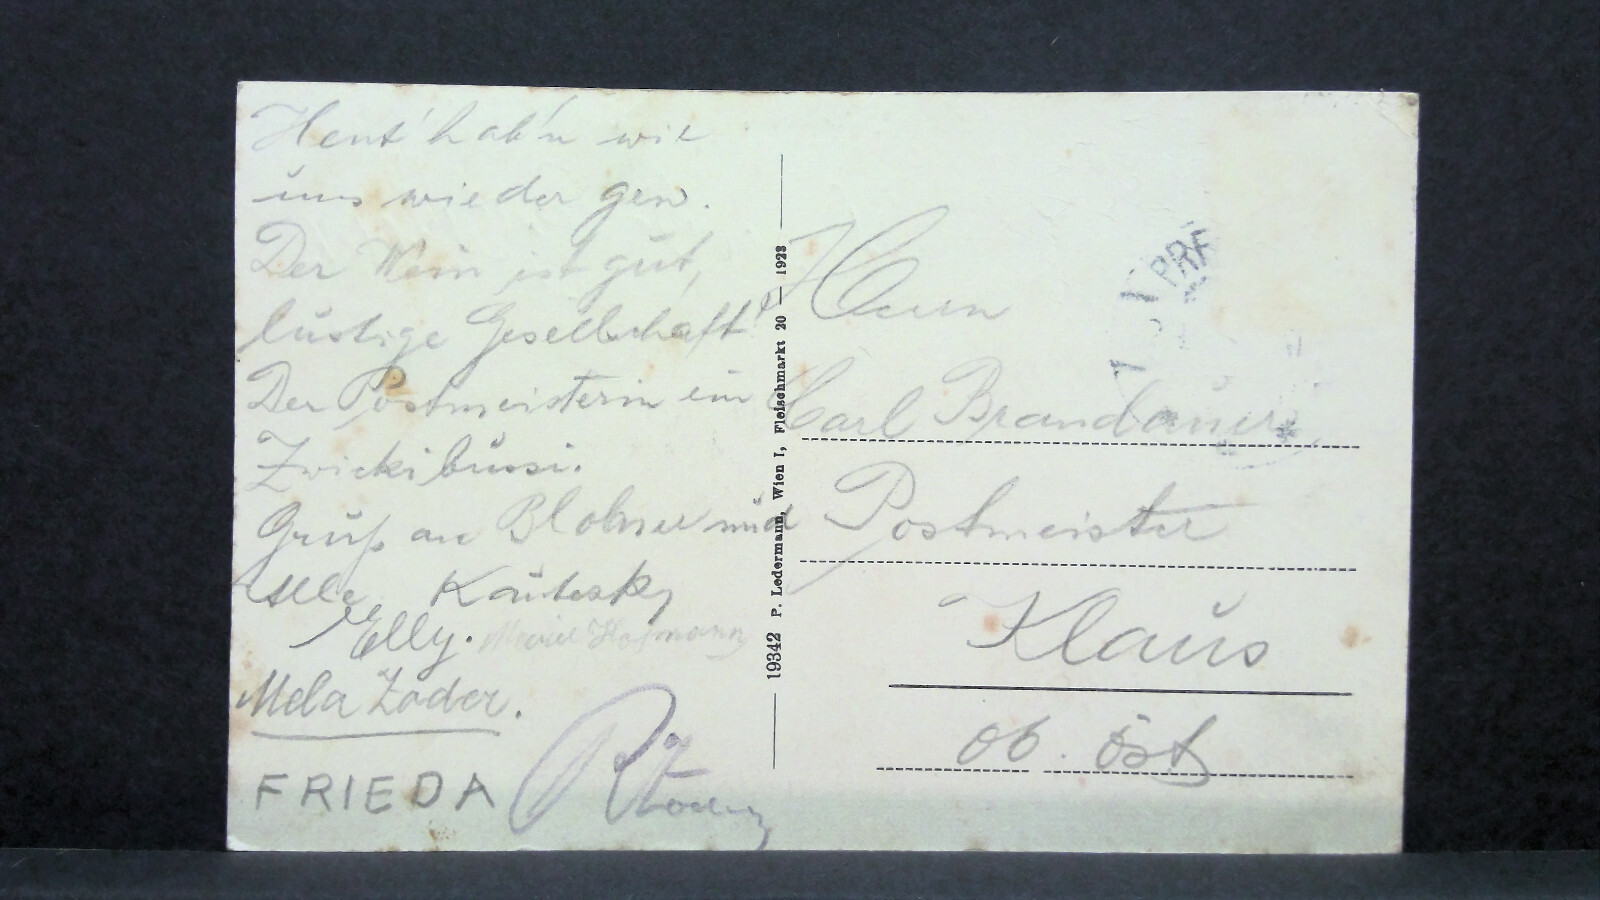 Heut' hab'n wir
uns wieder gern.
Der Wein ist gut,
lustige Gesellschaft!
Der Postmeisterin ein
Zwickibussi.
Gruß an und
Alle Kautesky
Elly. Hofmann
Mela Zoder.
FRIEDA
19342 P. Ledermann, Wien I, Fleischmarkt 20 — 1923
Herrn
Carl Brandauer
Postmeister
Klaus
ob. öst